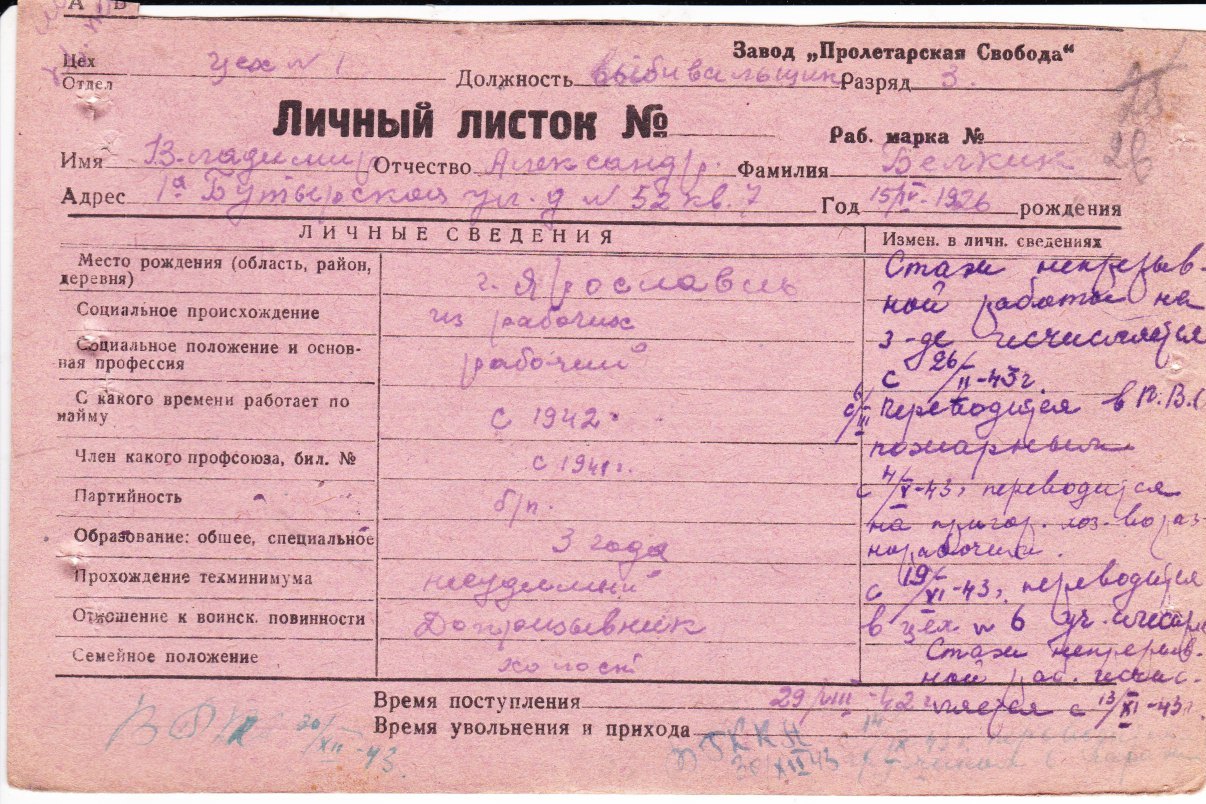 А В
Завод „Пролетарская Свобода“
Цех Отдел цех N 1 Должность выбивальщик Разряд 3.
Личный листок №
Раб. марка №
25
26
Имя Владимир Отчество Александр. Фамилия Белкик
Адрес 1ª Бутырская ул. д N 52 кв. 7 Год 15/IV-1926 рождения
ЛИЧНЫЕ СВЕДЕНИЯ
Место рождения (область, район, деревня) г. Ярославль
Социальное происхождение из рабочих
Социальное положение и основная профессия рабочий
С какого времени работает по найму с 1942.
Член какого профсоюза, бил. № с 1941 г.
Партийность б/п.
Образование: общее, специальное 3 года
Прохождение техминимума
Отношение к воинск. повинности Допризывник
Семейное положение холост
Измен. в личн. сведениях
Стаж непрерыв-
ной работы на
з-де исчисляется
с 26/II-43г.
переводится в П.В.
пожарным
с 4/X-43г переводится
на пригор. хоз-во раз-
норабочим.
с 19/XI-43г. переводится
в цех N 6 уч.
Стаж непрерыв-
ной раб. исчис-
ляется с 13/XI-43г.
Время поступления 29/VIII-42
Время увольнения и прихода
20/XII-43.
30/XII 43